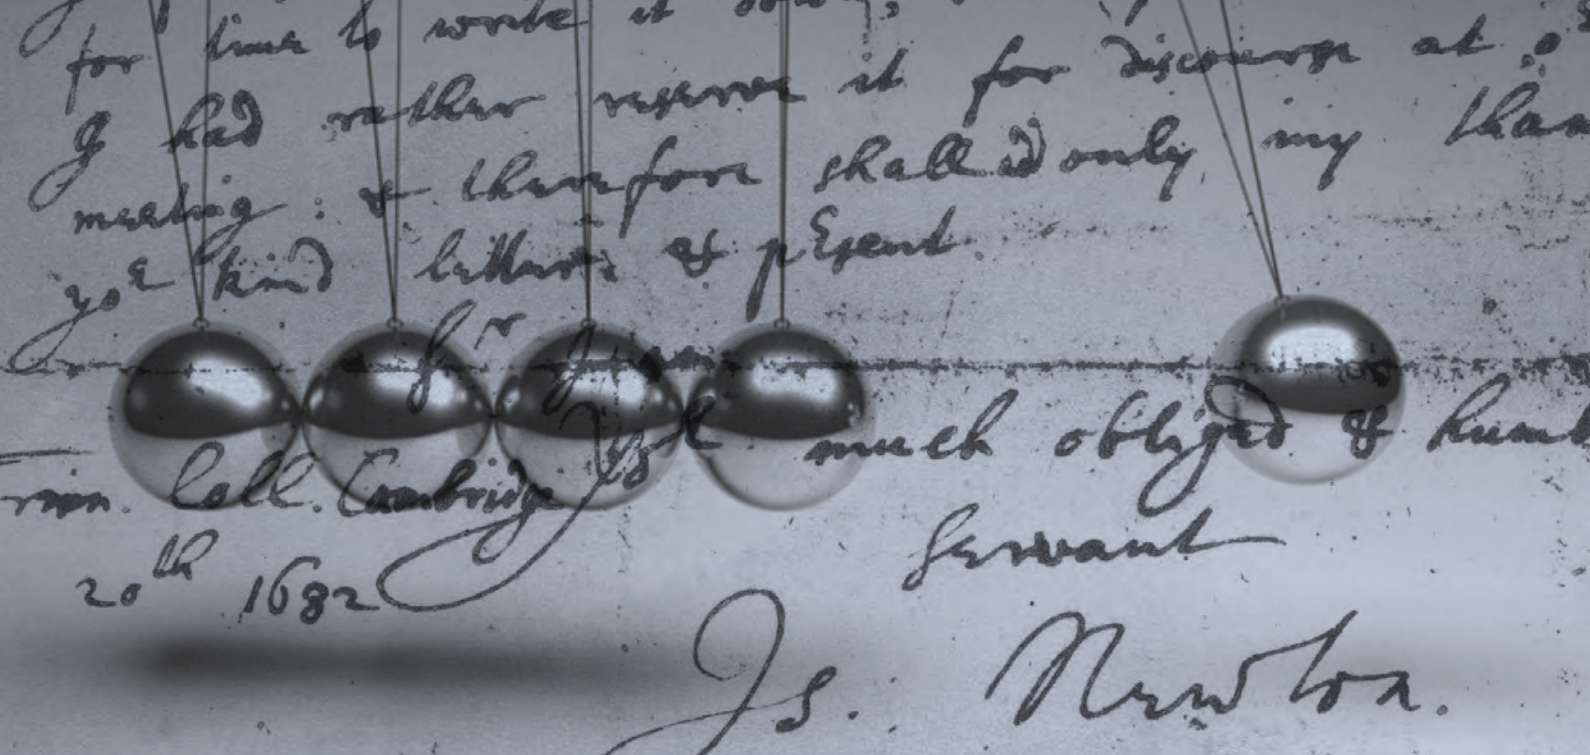 for time to write it down,
I had rather reserve it for discourse at o
meeting: & therefore shall add only my than
yoR kind letters & pResent.
Sr I am
Yor much obliged & humb
Trin. Coll. Cambridge
Servant
20th 1682
Is. Newton.